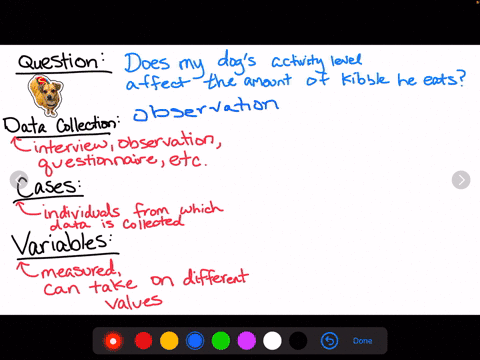 Question: Does my dog's activity level
affect the amount of kibble he eats?
Data Collection: observation
interview, observation,
questionnaire, etc.
Cases:
individuals from which
data is collected
Variables:
measured,
can take on different
values
Done